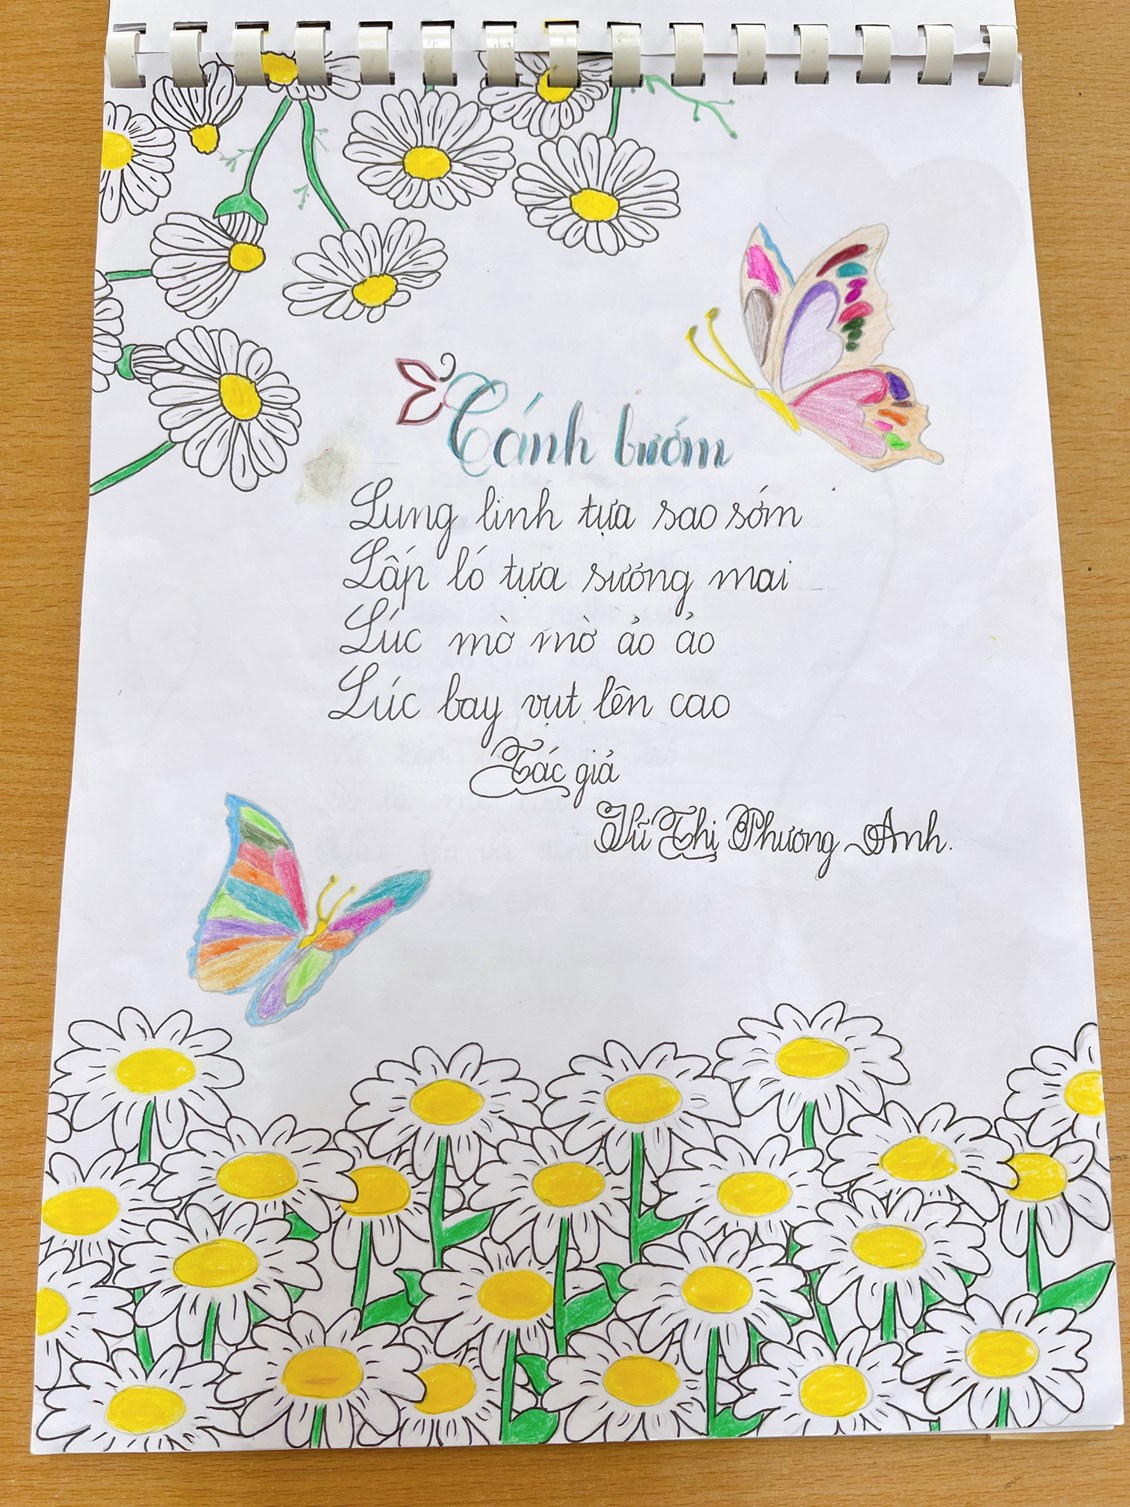 Cánh bướm
Lung linh tựa sao sớm
Lấp ló tựa sương mai
Lúc mờ mờ ảo ảo
Lúc bay vụt lên cao
Tác giả
Vũ Thị Phương Anh.